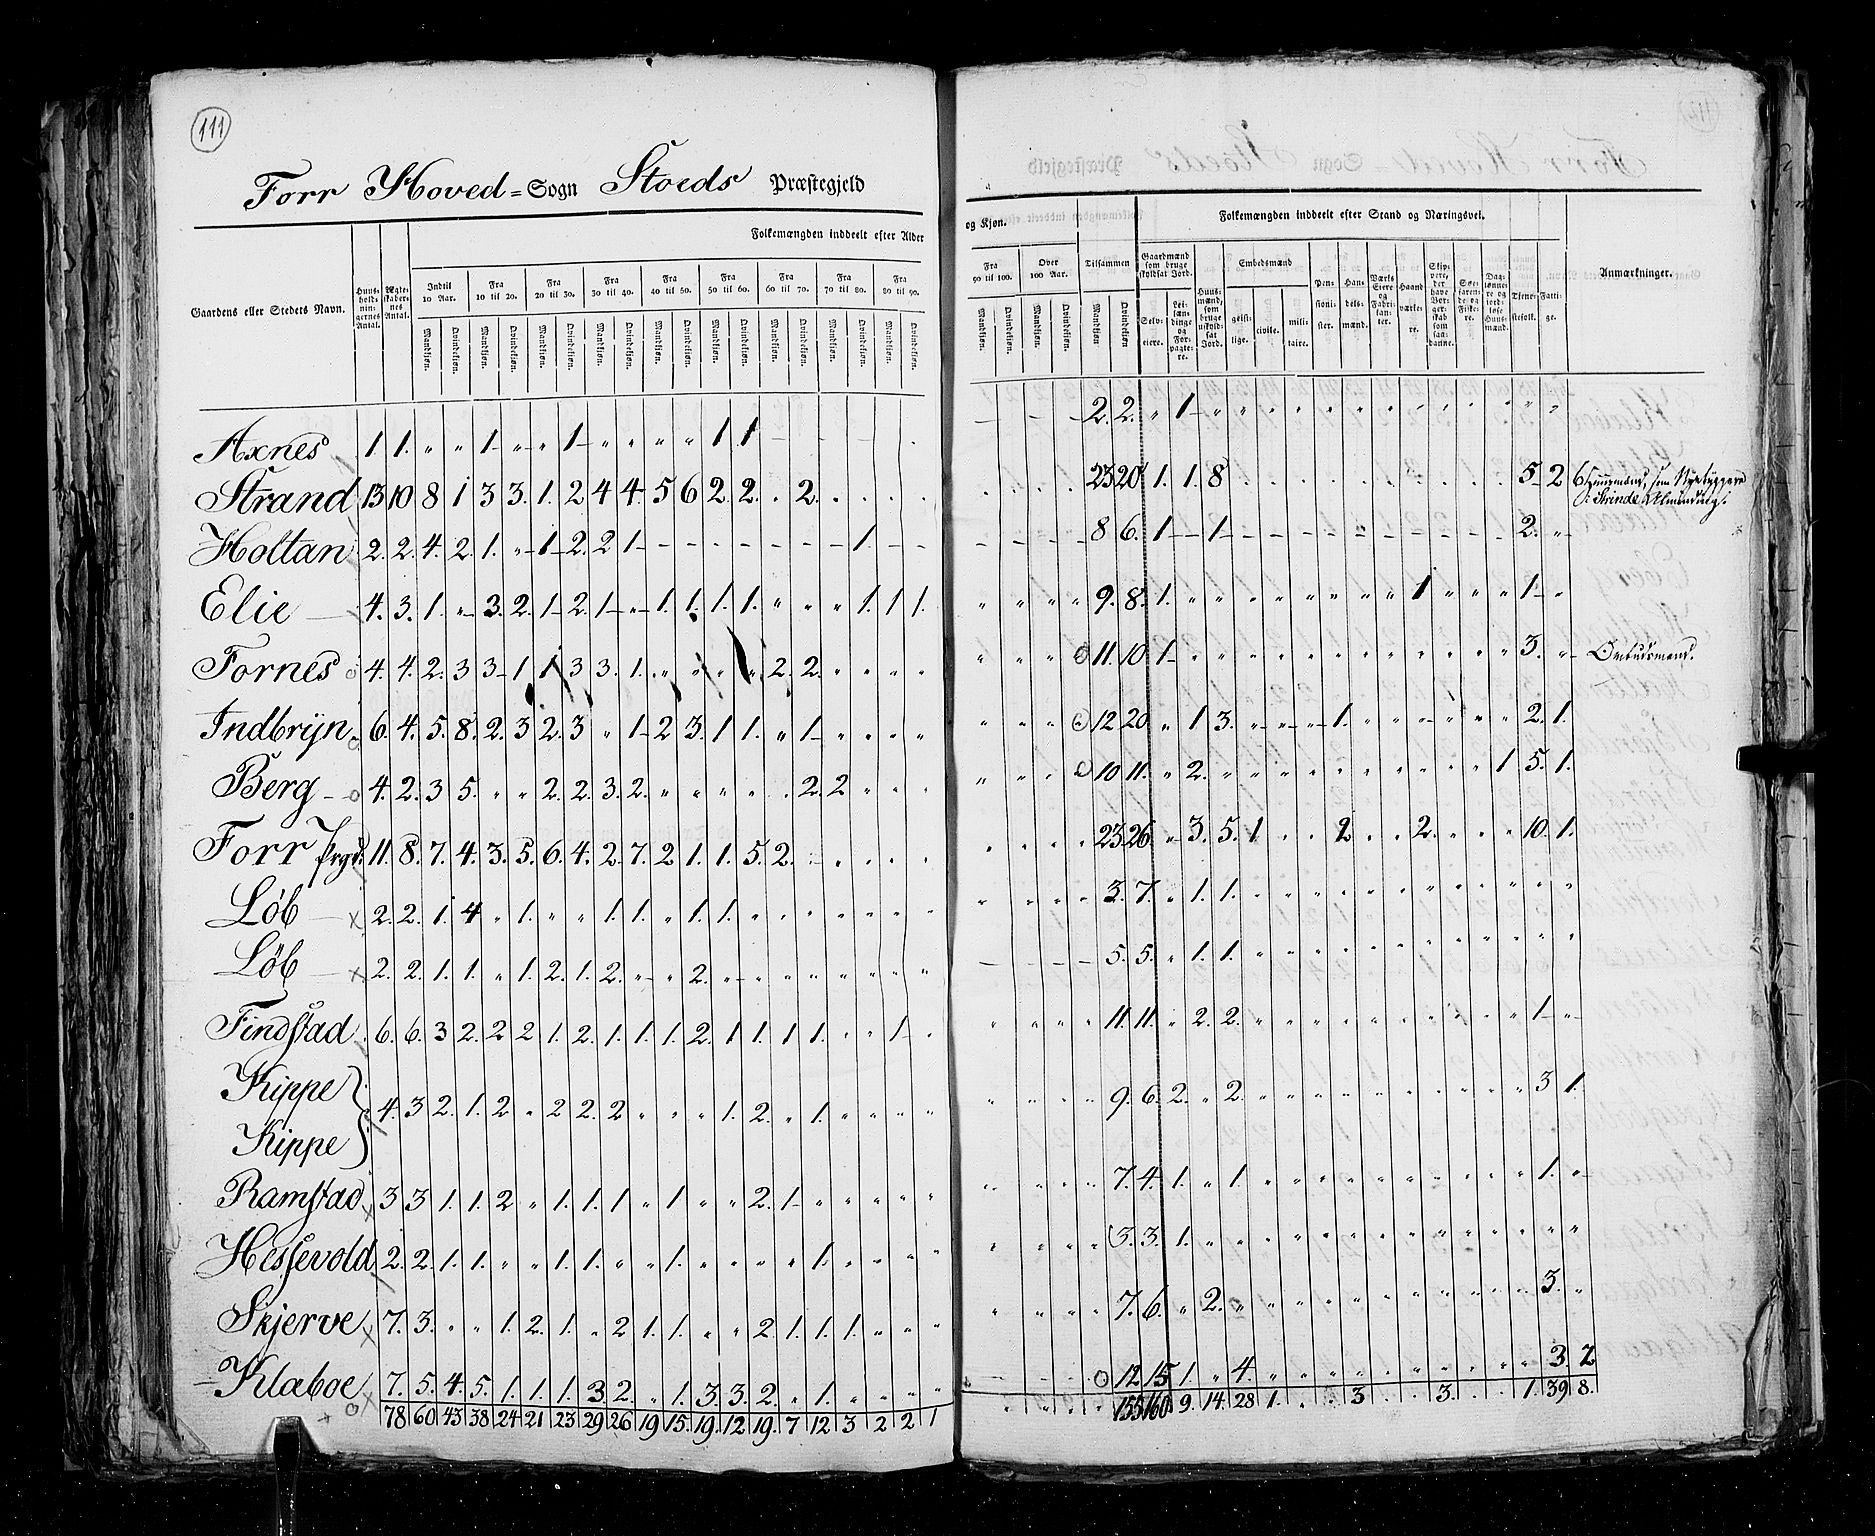 111
Forr Hoved = Sogn Stoeds Præstegjeld
Folkemængden inddeelt efter Alder
Gaardens eller Stedets Navn.
Huus-holdnin-gernes Antal.
Ægte-skaber-nes Antal.
Indtil 10 Aar.
Fra 10 til 20.
Fra 20 til 30.
Fra 30 til 40.
Fra 40 til 50.
Fra 50 til 60.
Fra 60 til 70.
Fra 70 til 80.
Fra 80 til 90.
Mandkjøn. Qvindekjøn. Mandkjøn. Qvindekjøn. Mandkjøn. Qvindekjøn. Mandkjøn. Qvindekjøn. Mandkjøn. Qvindekjøn. Mandkjøn. Qvindekjøn. Mandkjøn. Qvindekjøn. Mandkjøn. Qvindekjøn. Mandkjøn. Qvindekjøn.
Axnes 1. 1. " " 1 " " 1 " " " " 1 1
Strand 13 10 8 1 3 3. 1. 2 4 4 5 6 2. 2. . 2.
Holtan 2. 2. 4. 2. 1. " 1 2. 2 1 - - - - - - - 1. - -
Elie 4. 3. 1. " 3. 2. 1 2. 1 " 1. 1. 1. 1. " " " 1. 1 1.
Fornes 4. 4. 2. 3 3 1 1 3 3. 1. " " " " 2. 2. " " " "
Indbrÿn 6. 4. 5. 8. 2. 3 2. 3 " 1 2 3. 1 1. " 1 " " " "
Berg 4. 2. 3 5. " " 2. 2. 3. 2. " " " " . 2. 2 " " "
Forr Prgd. 11. 8. 7. 4. 3. 5. 6. 4. 2. 7. 2 1. 1. 5. 2.
Løb x 2. 2. 1. 4 " 1. " " 1. 1. " 1. 1. " " " " " " "
Løb x 2. 2. 1. 1. " 1. 2. 1. 2. " " 2. " " " " " " " "
Findstad 6. 6. 3 2. 2. 2 1. 2. 1. 1. 1. 2. 1 1. 1 1. " " 1 "
Kippe } 4. 3 2. 1. 2 " 2 2. 2 " " " 1. 2. " 1. " " " "
Kippe
Ramstad x 3 3 1. 1. 2 " 1. 1. 1 " 1 " " 2. 1 " " " " "
Hessevold 2. 2. 1. 1. " " 1. 1. " " 1. " " " " 1. " " " "
Skjerve x 7. 3. " " 1. 2. 1. " 2 1. 1. " " 2. 1. 1. 1. " " "
Klaboe x 7. 5. 4. 5. 1. 1. 1. 3 2. " 1. 3. 3. 2. " 1. " " " "
78 60 43 38 24 21 23 29 26 19 15. 19. 12 19. 7 12 3 2 2 1
og Kjøn.
Folkemængden inddeelt efter Stand og Næringsvei.
Fra 90 til 100.
Over 100 Aar.
Tilsammen
Gaardmænd som bruge skyldsat Jord.
Selv-eiere.
Huus-mænd, som bruge uskyld-sat Jord.
Embedsmænd
geist-lige. civile. mili-taire.
Pen-sioni-ster.
Han-dels-mænd.
Haand-værke-re.
Tjene-stefolk.
Fatti-ge.
Anmærkninger.
Mandkjøn. Qvindekjøn. Mandkjøn. Qvindekjøn. Mandkjøn. Qvindekjøn.
2. 2. " 1 " " " " " " " " " " " "
23 20 1. 1. 8 5 2 6 Huusmænd, som
8 6. 1 1 2. "
9. 8. 1. 1 1 "
11. 10 1 3. " Ombudsmand.
12 20 " 1 3. 1. 2. 1.
10 11. " 2. 1 5. 1.
23 26 " 3. 5. 1 2 2. 10. 1.
3. 7. " 1. 1.
5. 5. " 1. 1.
11. 11. " 2. 2. 1 "
9. 6. 2. " 2. 3 1.
7. 4. 1. " 1. 1. "
3. 3. 1.
7. 6. " 2. 3. "
12 15 1. " 4. 3. 2
155 160 9. 14. 28 1. 3 3. 1. 39 8.